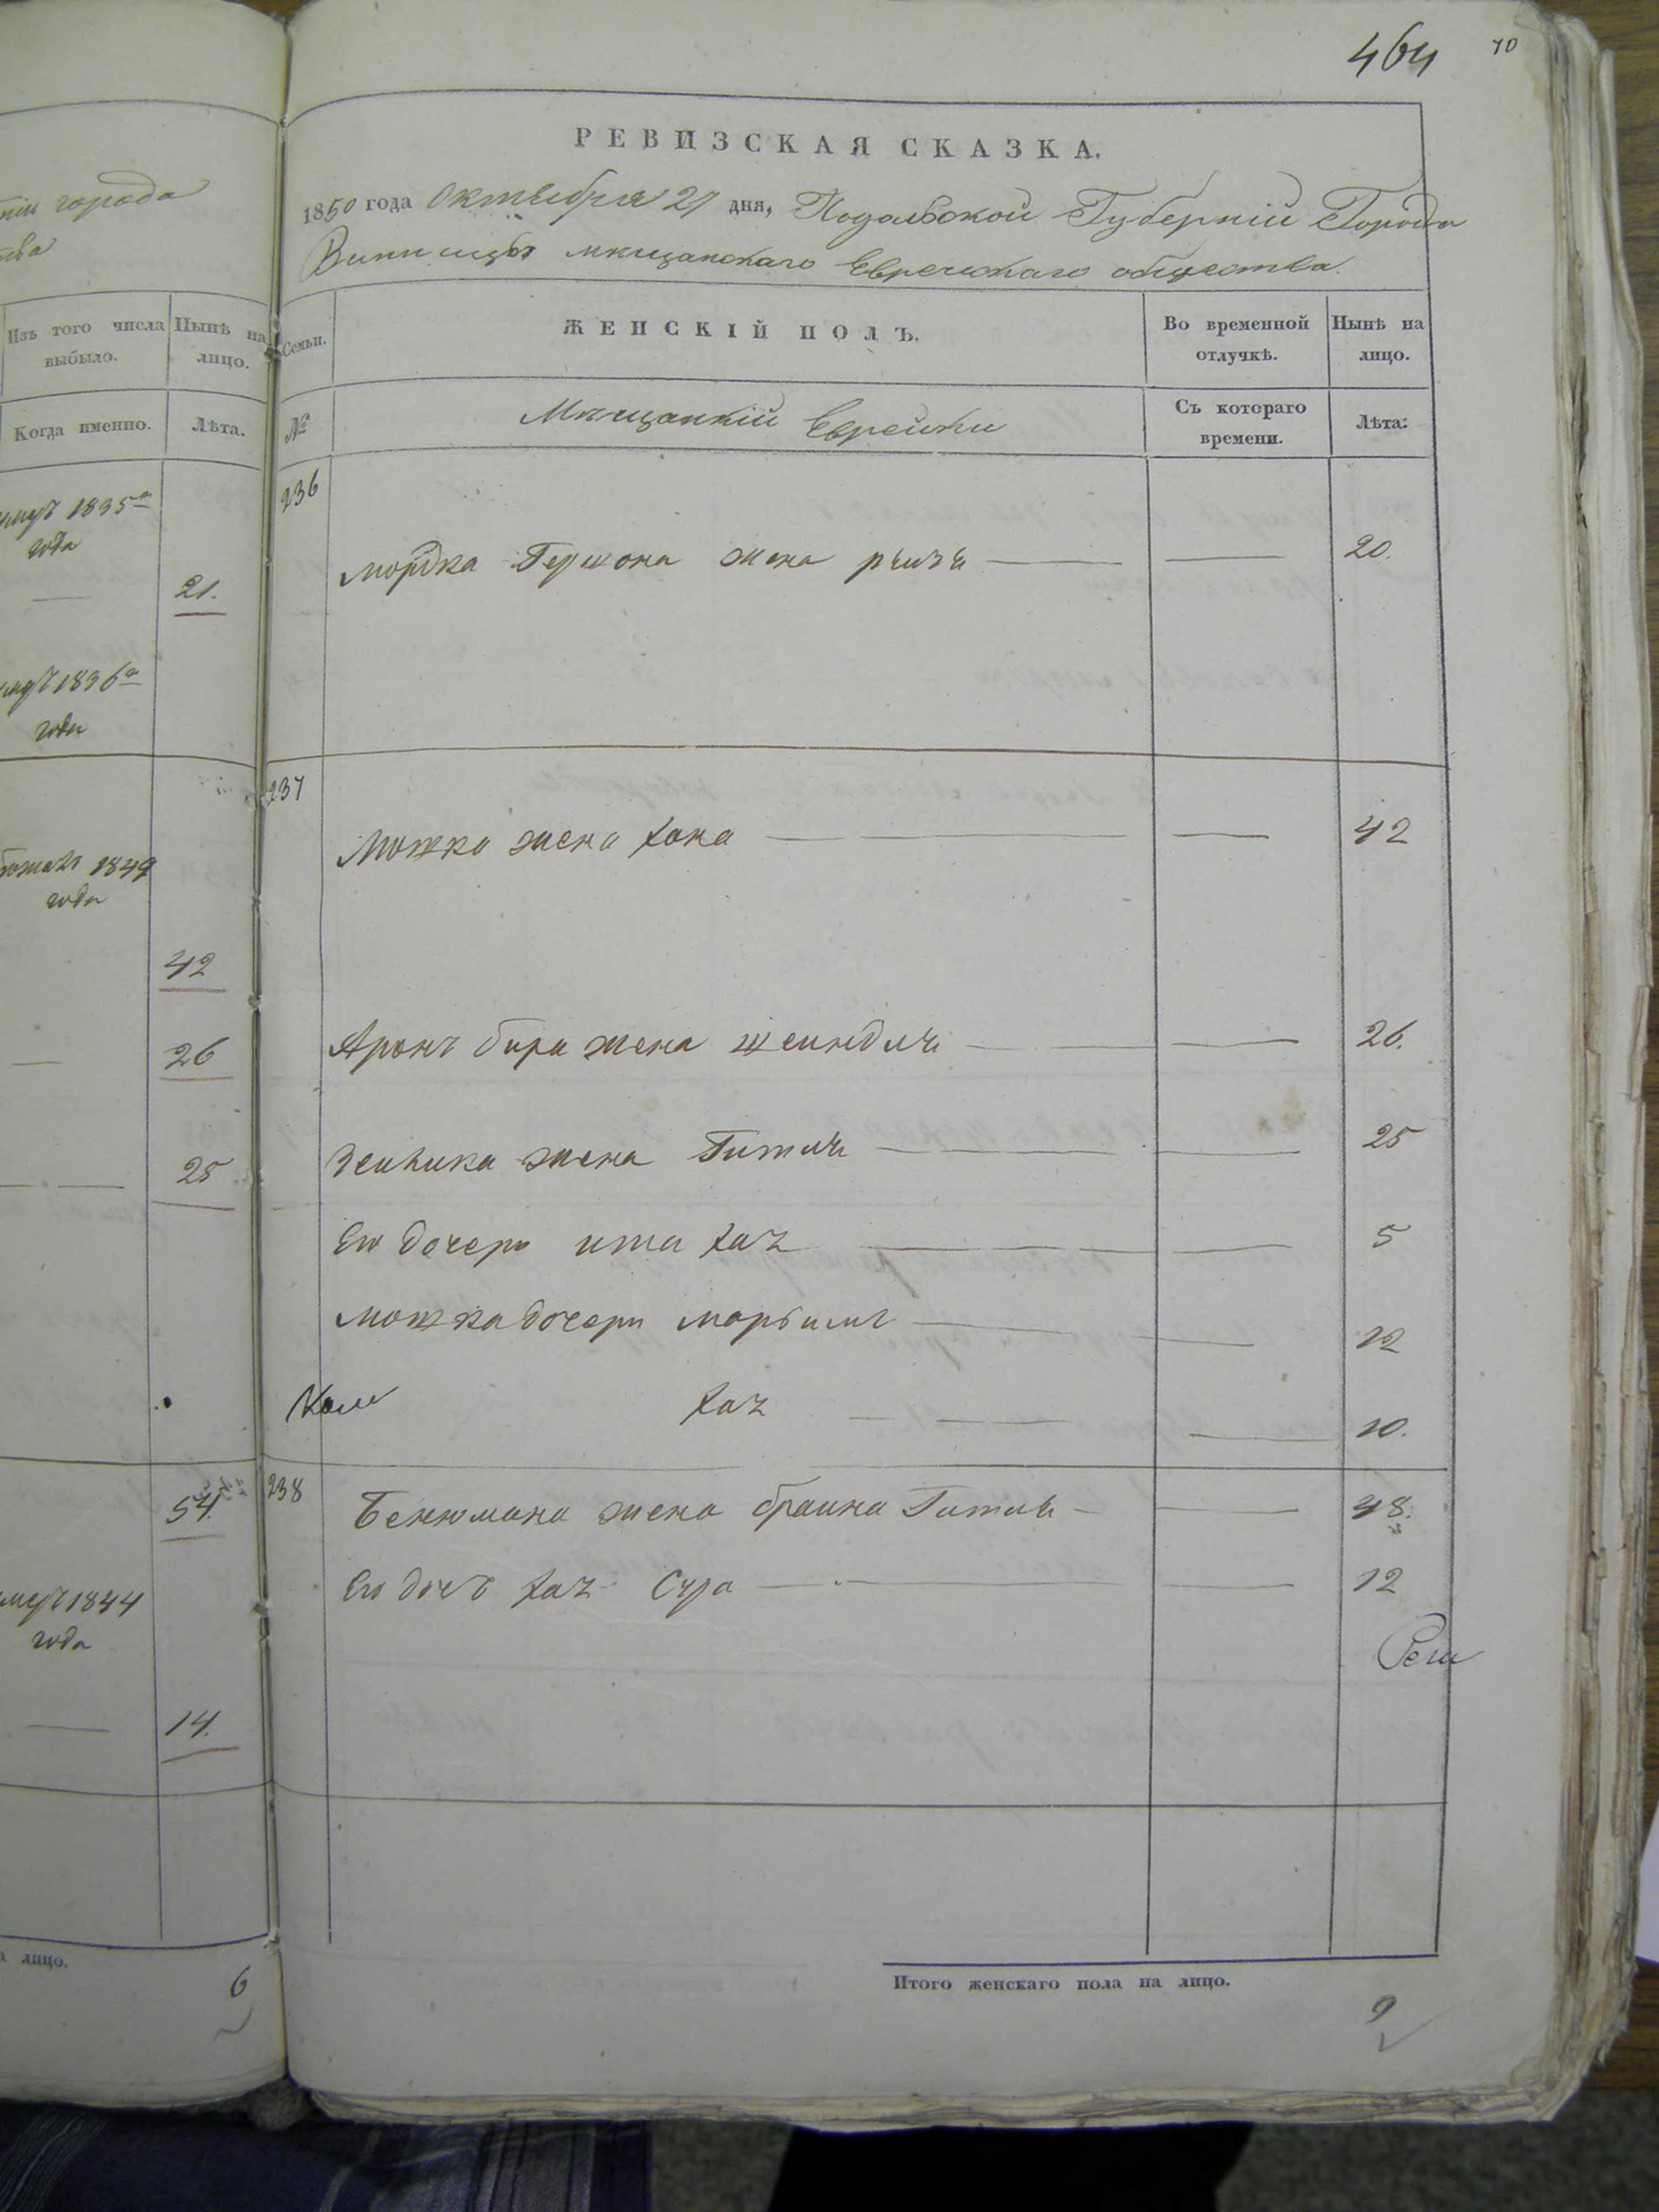 464 70
города
Изъ того числа выбыло.
Нынѣ на лицо.
Когда именно.
Лѣта.
1835го
года
21.
1836го
года
1849
года
42
26
25
54.
1844
года
14.
лицо.
6
РЕВИЗСКАЯ СКАЗКА.
1850 года Октября 27 дня, Подольской Губерніи Города
Винницы мѣщанскаго Еврейскаго общества.
Семьи.
ЖЕНСКІЙ ПОЛЪ.
Во временной отлучкѣ.
Нынѣ на лицо.
№
Мѣщанкій Еврейки
Съ котораго времени.
Лѣта:
236
Мордка Гершона жена 20.
237
Мошка жена хана 42
Аронъ бира жена шеиндля 26.
жена Гитля 25
Его дочери ита хая 5
Мошка дочери марьимъ 12
хая 10.
238 Бенюмана жена браина Гитля 48.
Его дочь хая Сура 12
Итого женскаго пола на лицо.
9